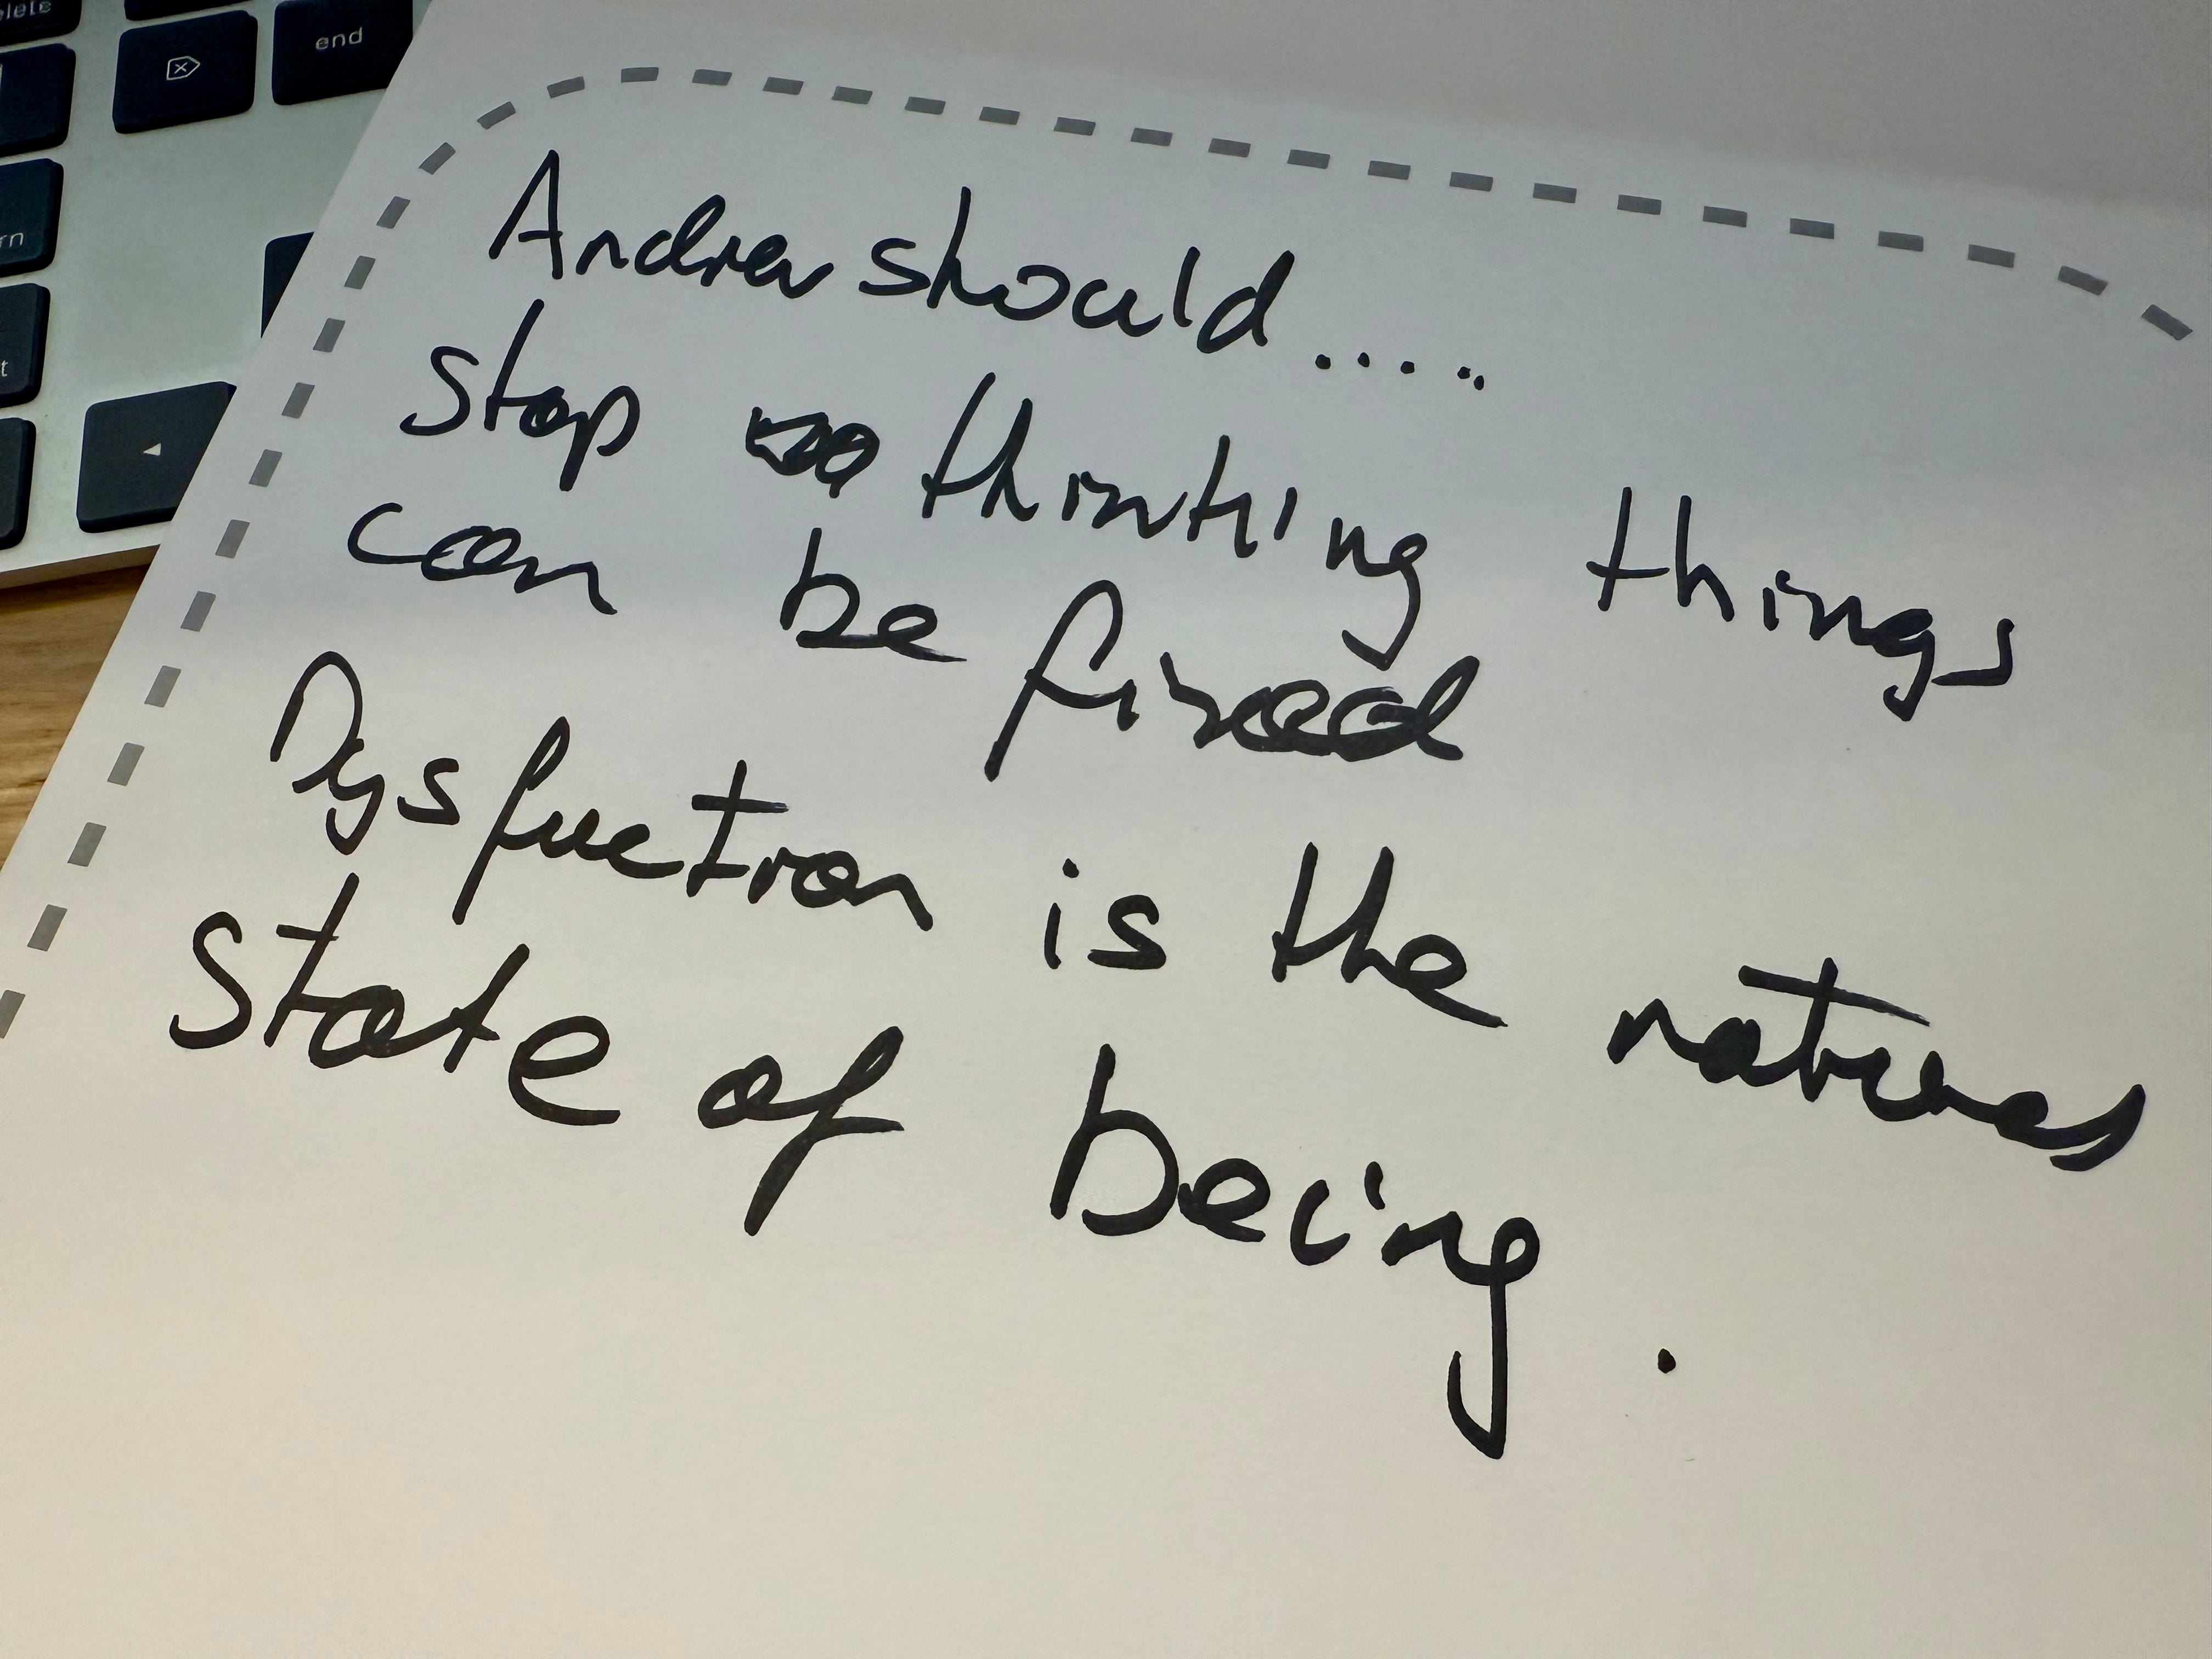 elete
end
rn
t
Andrew should.....
stop thinking things
can be fixed
Dysfunction is the natural
state of being.